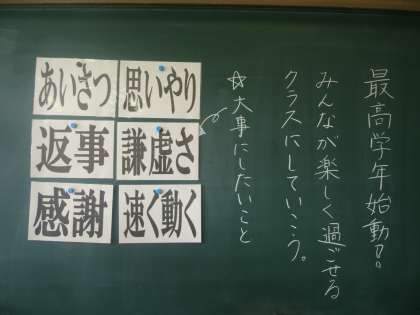 最高学年始動!!
みんなが楽しく過ごせる
クラスにしていこう。
☆大事にしたいこと
あいさつ
思いやり
返事
謙虚さ
感謝
速く動く